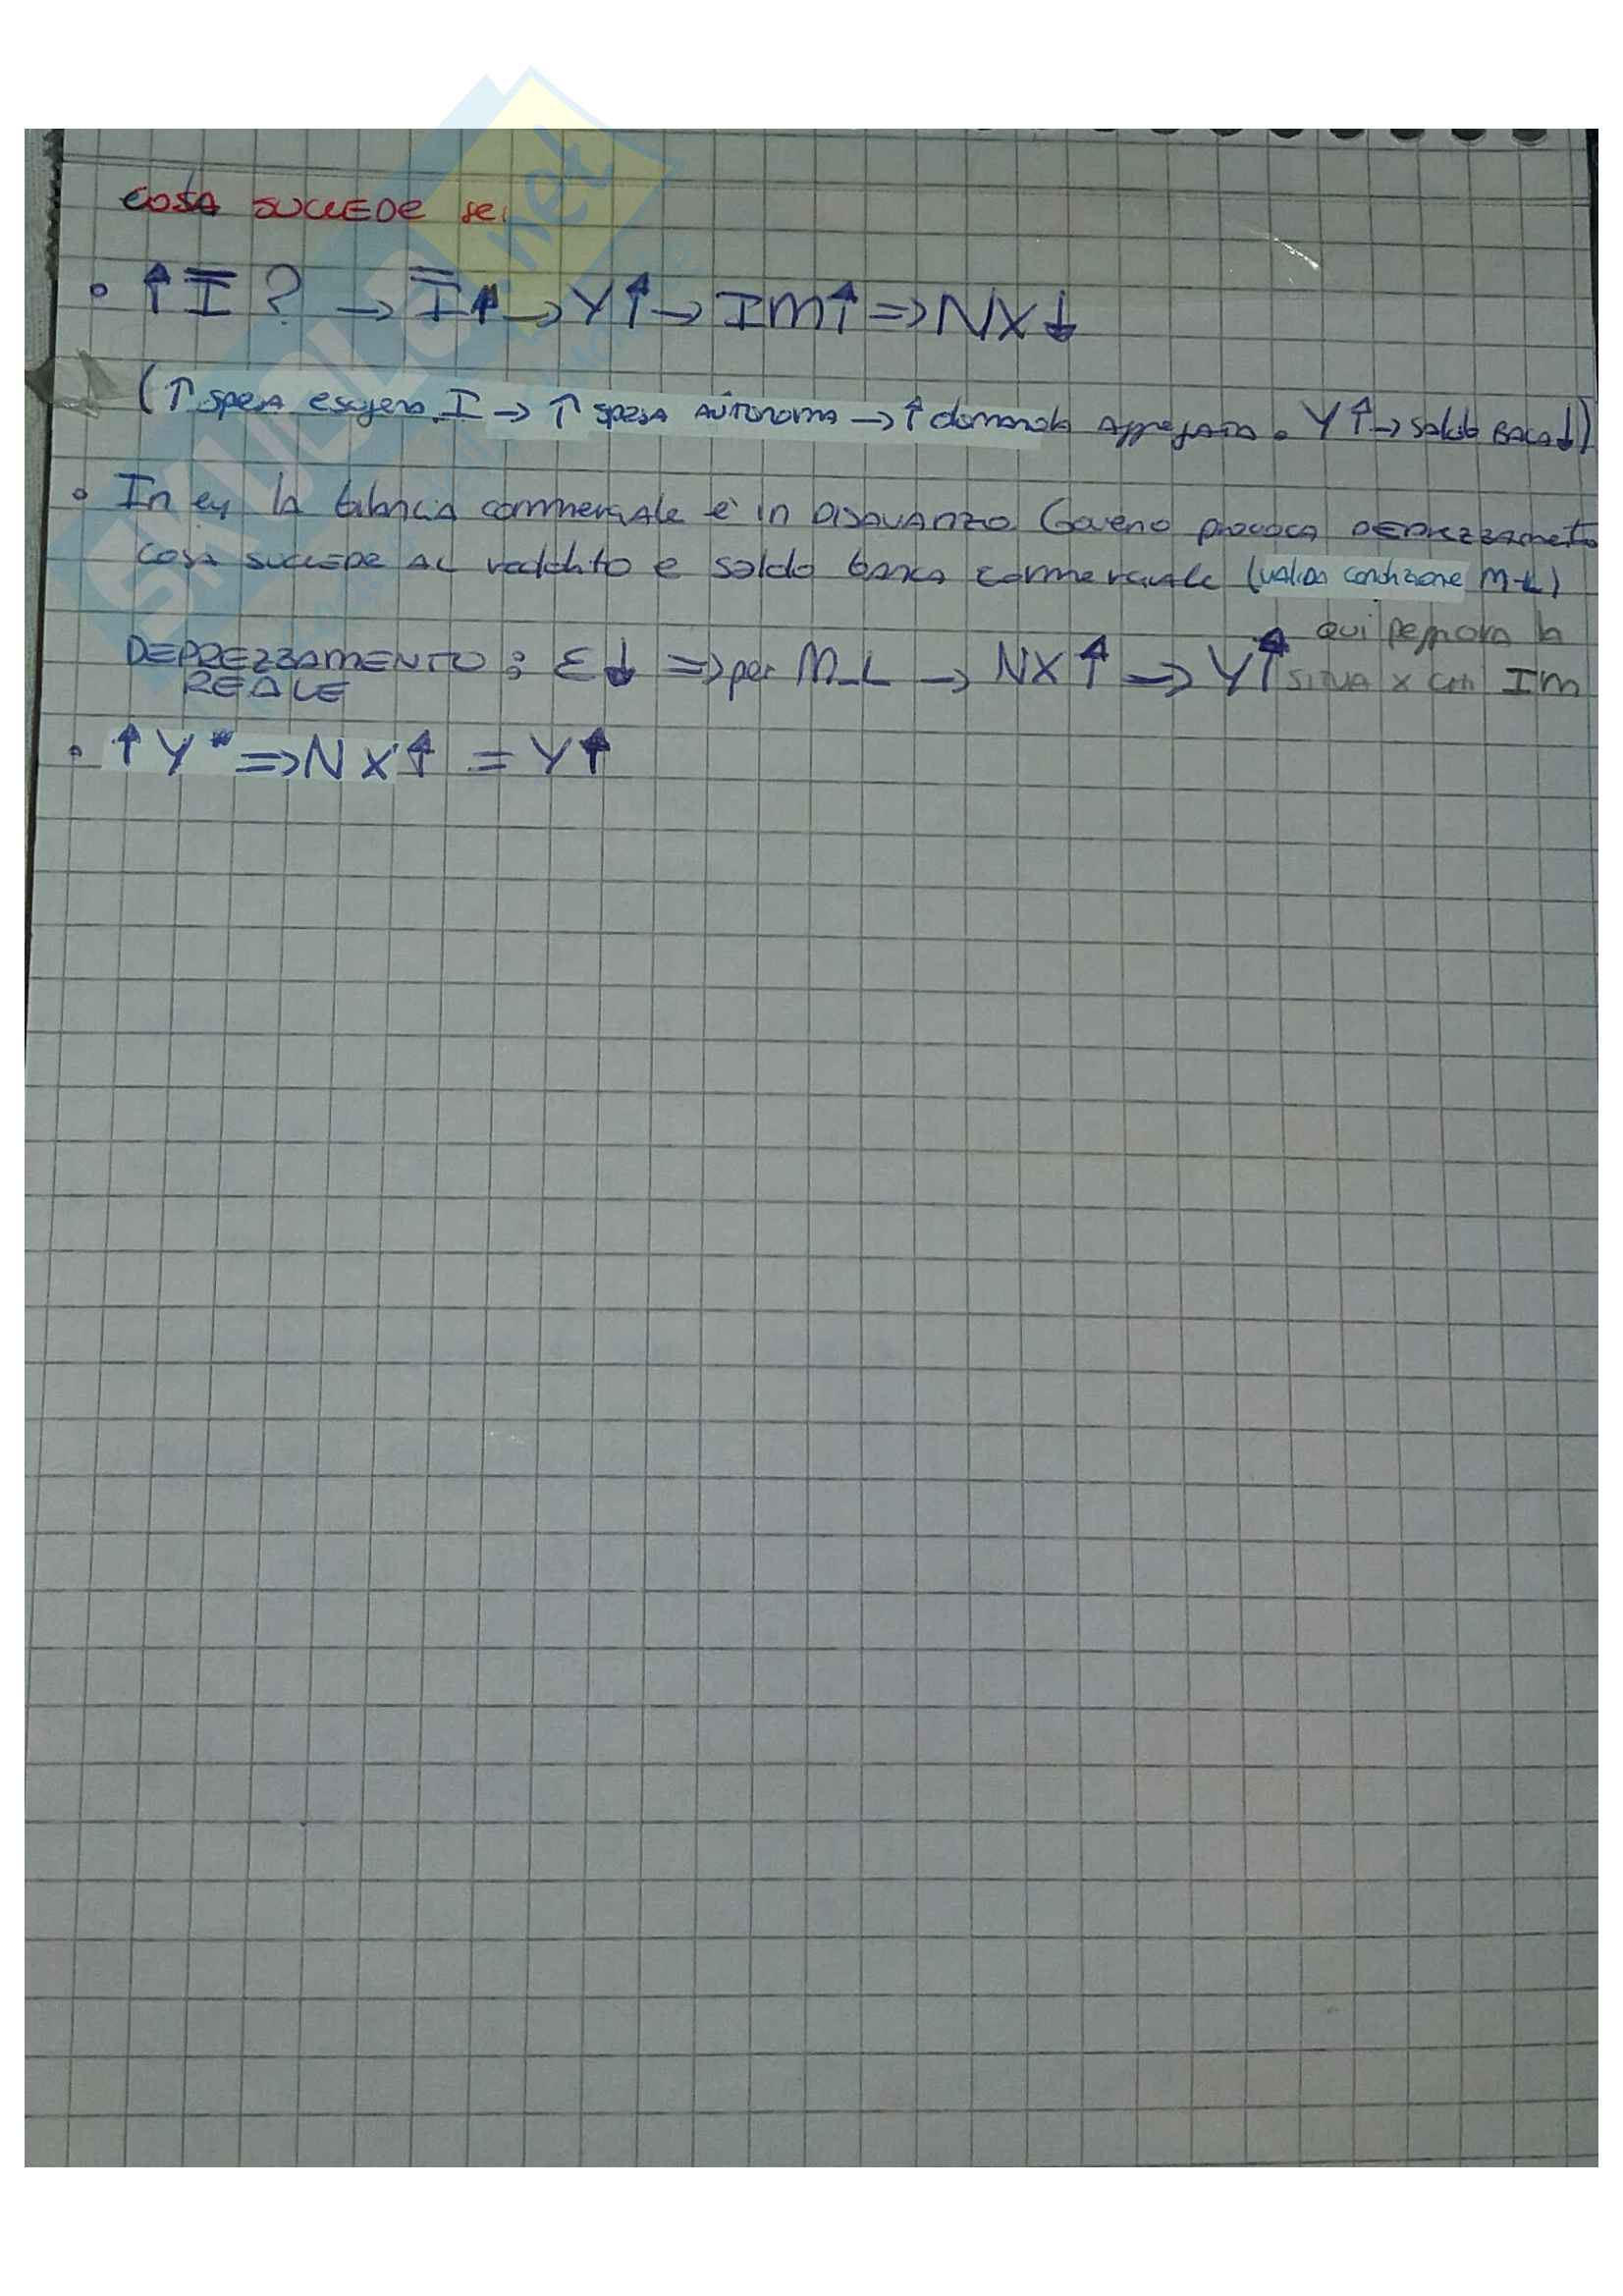 COSA SUCCEDE se:
• ↑ Ī ? → Ī↑ → Y↑ → IM↑ => NX↓
(↑ spesa esogena I → ↑ spesa AUTONOMA → ↑ domanda Aggregata. Y↑ → saldo BACA↓)
• In eq la bilancia commerciale è in DISAVANZO. Governo provoca DEPREZZAMENTO
COSA SUCCEDE AL reddito e saldo banca commerciale (valida condizione M-L)
qui peggiora la
DEPREZZAMENTO: ε↓ => per M-L → NX↑ => Y↑ situa x con IM
REALE
• ↑ Y* => NX↑ = Y↑
SKUOLA.net